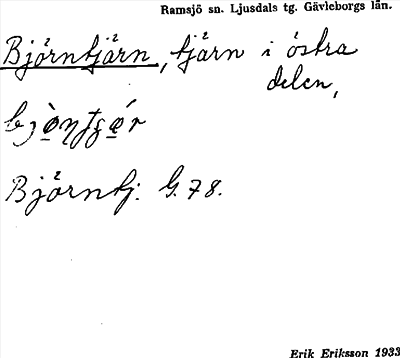 Ramsjö sn. Ljusdals tg. Gävleborgs län.
Björntjärn, tjärn i östra
delen,
Björntj. G. 78.
Erik Eriksson 1933